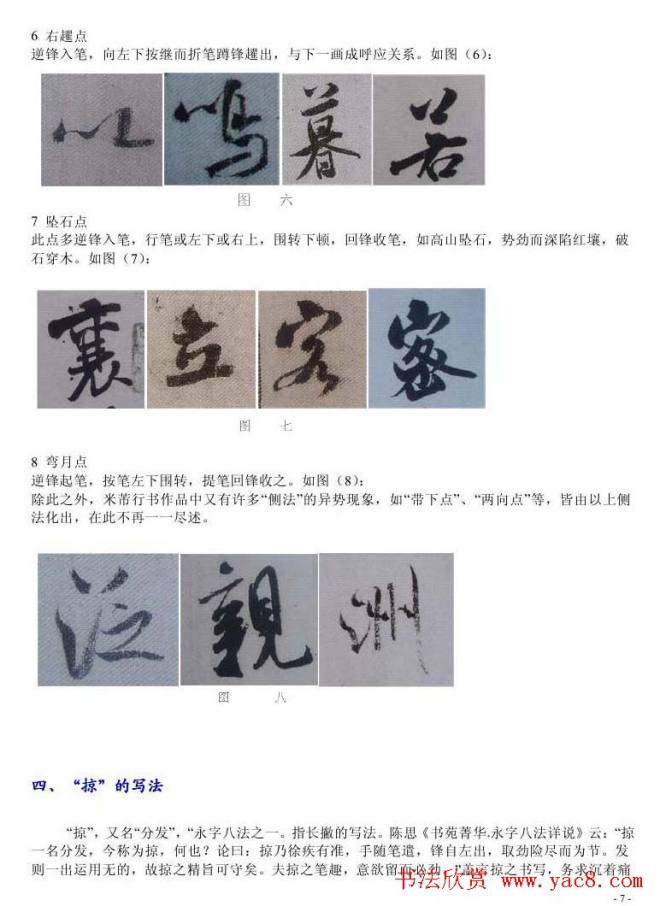 6 右趯点
逆锋入笔，向左下按继而折笔蹲锋趯出，与下一画成呼应关系。如图（6）：
以 鸣 暮 若
图 六
7 坠石点
此点多逆锋入笔，行笔或左下或右上，围转下顿，回锋收笔，如高山坠石，势劲而深陷红壤，破
石穿木。如图（7）：
襄 立 客 密
图 七
8 弯月点
逆锋起笔，按笔左下围转，提笔回锋收之。如图（8）：
除此之外，米芾行书作品中又有许多“侧法”的异势现象，如“带下点”、“两向点”等，皆由以上侧
法化出，在此不再一一尽述。
泛 親 洲
图 八
四、“掠”的写法
“掠”，又名“分发”，“永字八法之一。指长撇的写法。陈思《书苑菁华.永字八法详说》云：“掠
一名分发，今称为掠，何也？论曰：掠乃徐疾有准，手随笔遣，锋自左出，取劲险尽而为节。发
则一出运用无的，故掠之精旨可守矣。夫掠之笔趣，意欲留而必劲。”盖言掠之书写，务求沉着痛
书法欣赏 www.yac8.com
- 7 -